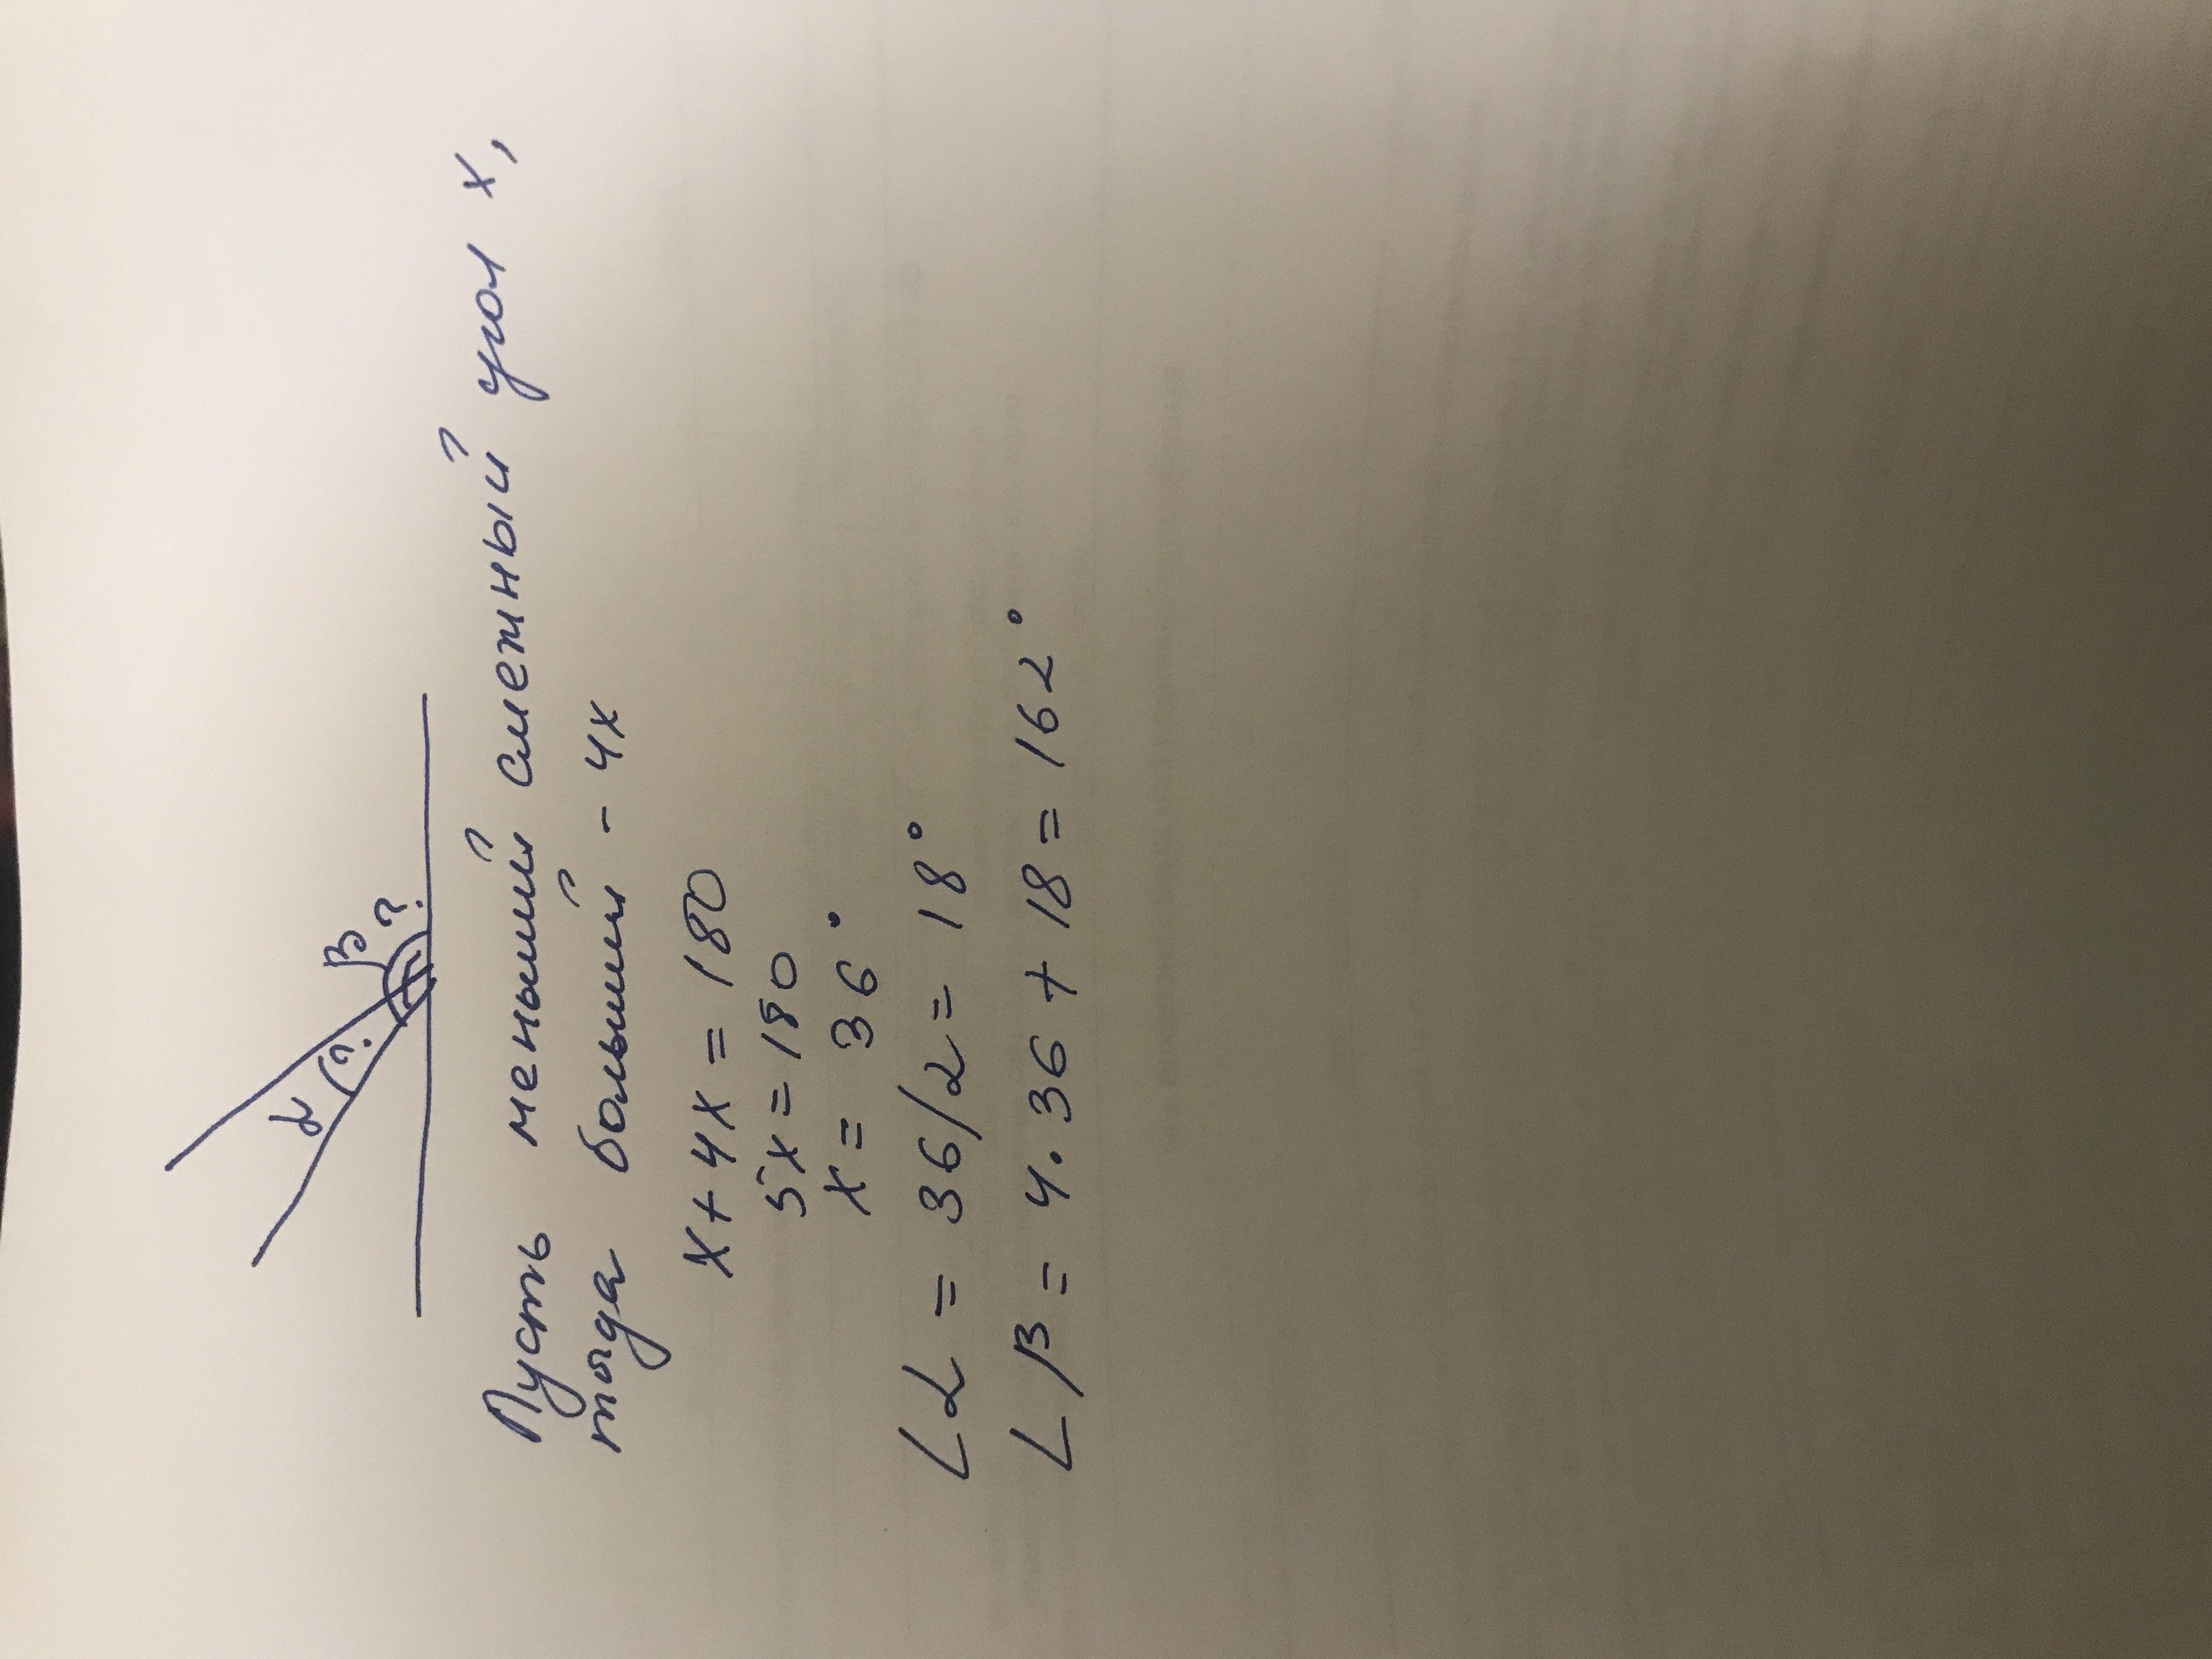 α ?
β ?
Пусть меньший смежный угол x,
тогда больший - 4x
x + 4x = 180
5x = 180
x = 36°
∠α = 36/2 = 18°
∠β = 4·36 + 18 = 162°